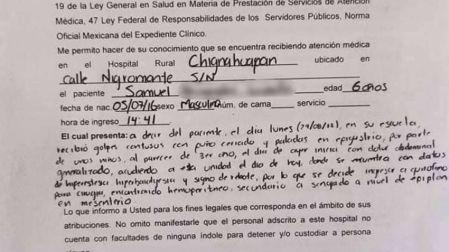 19 de la Ley General en Salud en Materia de Prestación de Servicios de Atención
Médica, 47 Ley Federal de Responsabilidades de los Servidores Públicos, Norma
Oficial Mexicana del Expediente Clínico.
Me permito hacer de su conocimiento que se encuentra recibiendo atención médica
en el Hospital Rural Chignahuapan ubicado en
calle Nigromante S/N
el paciente Samuel edad 6 años
fecha de nac 05/07/16 sexo Masculino núm. de cama servicio
hora de ingreso 14:41
El cual presenta: a decir del paciente, el día lunes (29/08/22), en su escuela,
recibió golpes contusos con puño cerrado y patadas en epigastrio, por parte
de unos niños, al parecer de 3er año, el día de ayer inicia con dolor abdominal
generalizado, acudiendo a esta unidad el día de hoy, donde se encuentra con datos
de hiperestesia hiperbaralgesia y signo de rebote, por lo que se decide ingresar a quirófano
para cirugía, encontrando hemoperitoneo, secundario a sangrado a nivel de epiplón
en mesenterio
Lo que informo a Usted para los fines legales que corresponda en el ámbito de sus
atribuciones. No omito manifestarle que el personal adscrito a este hospital no
cuenta con facultades de ninguna índole para detener y/o custodiar a persona